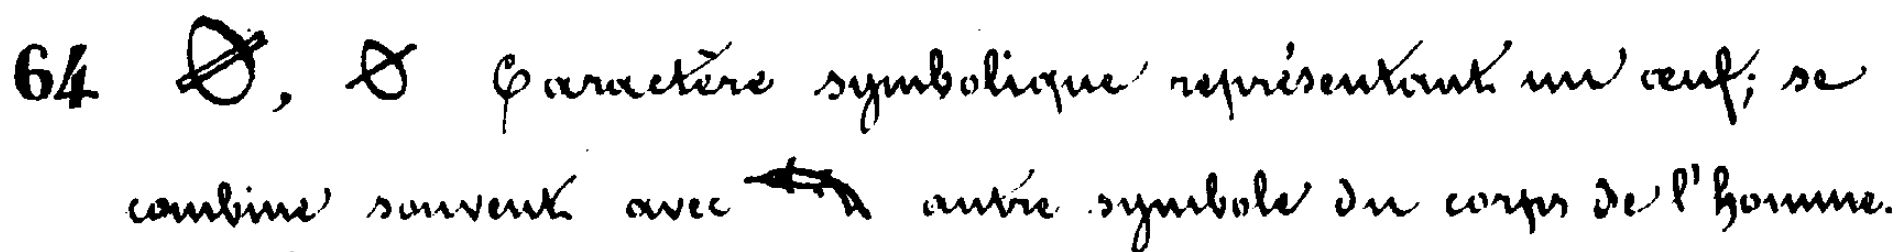 64 , Caractère symbolique représentant un œuf; se
combine souvent avec autre symbole du corps de l'homme.